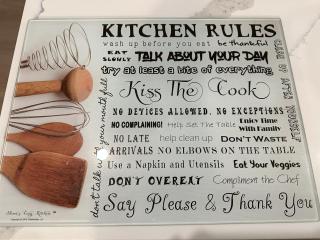 KITCHEN RULES
wash up before you eat be thankful
EAT SLOWLY TALK ABOUT YOUR DAY
try at least a bite of everything
Kiss The Cook
NO DEVICES ALLOWED, NO EXCEPTIONS
NO COMPLAINING! Help Set The Table Enjoy Time With Family
NO LATE ARRIVALS help clean up DON'T WASTE
NO ELBOWS ON THE TABLE
Use a Napkin and Utensils Eat Your Veggies
DON'T OVEREAT Compliment the Chef
Say Please & Thank You
don't talk with your mouth full
CLEAN UP AFTER YOURSELF